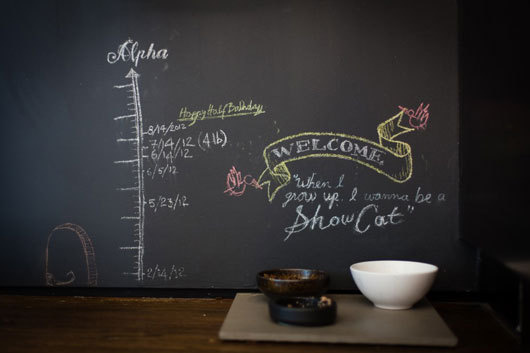 Alpha
Happy Half Birthday
8/14/2012
7/14/12 (4 lb)
6/14/12
6/5/12
5/23/12
2/14/12
WELCOME
"When I
grow up. I wanna be a
Show Cat"